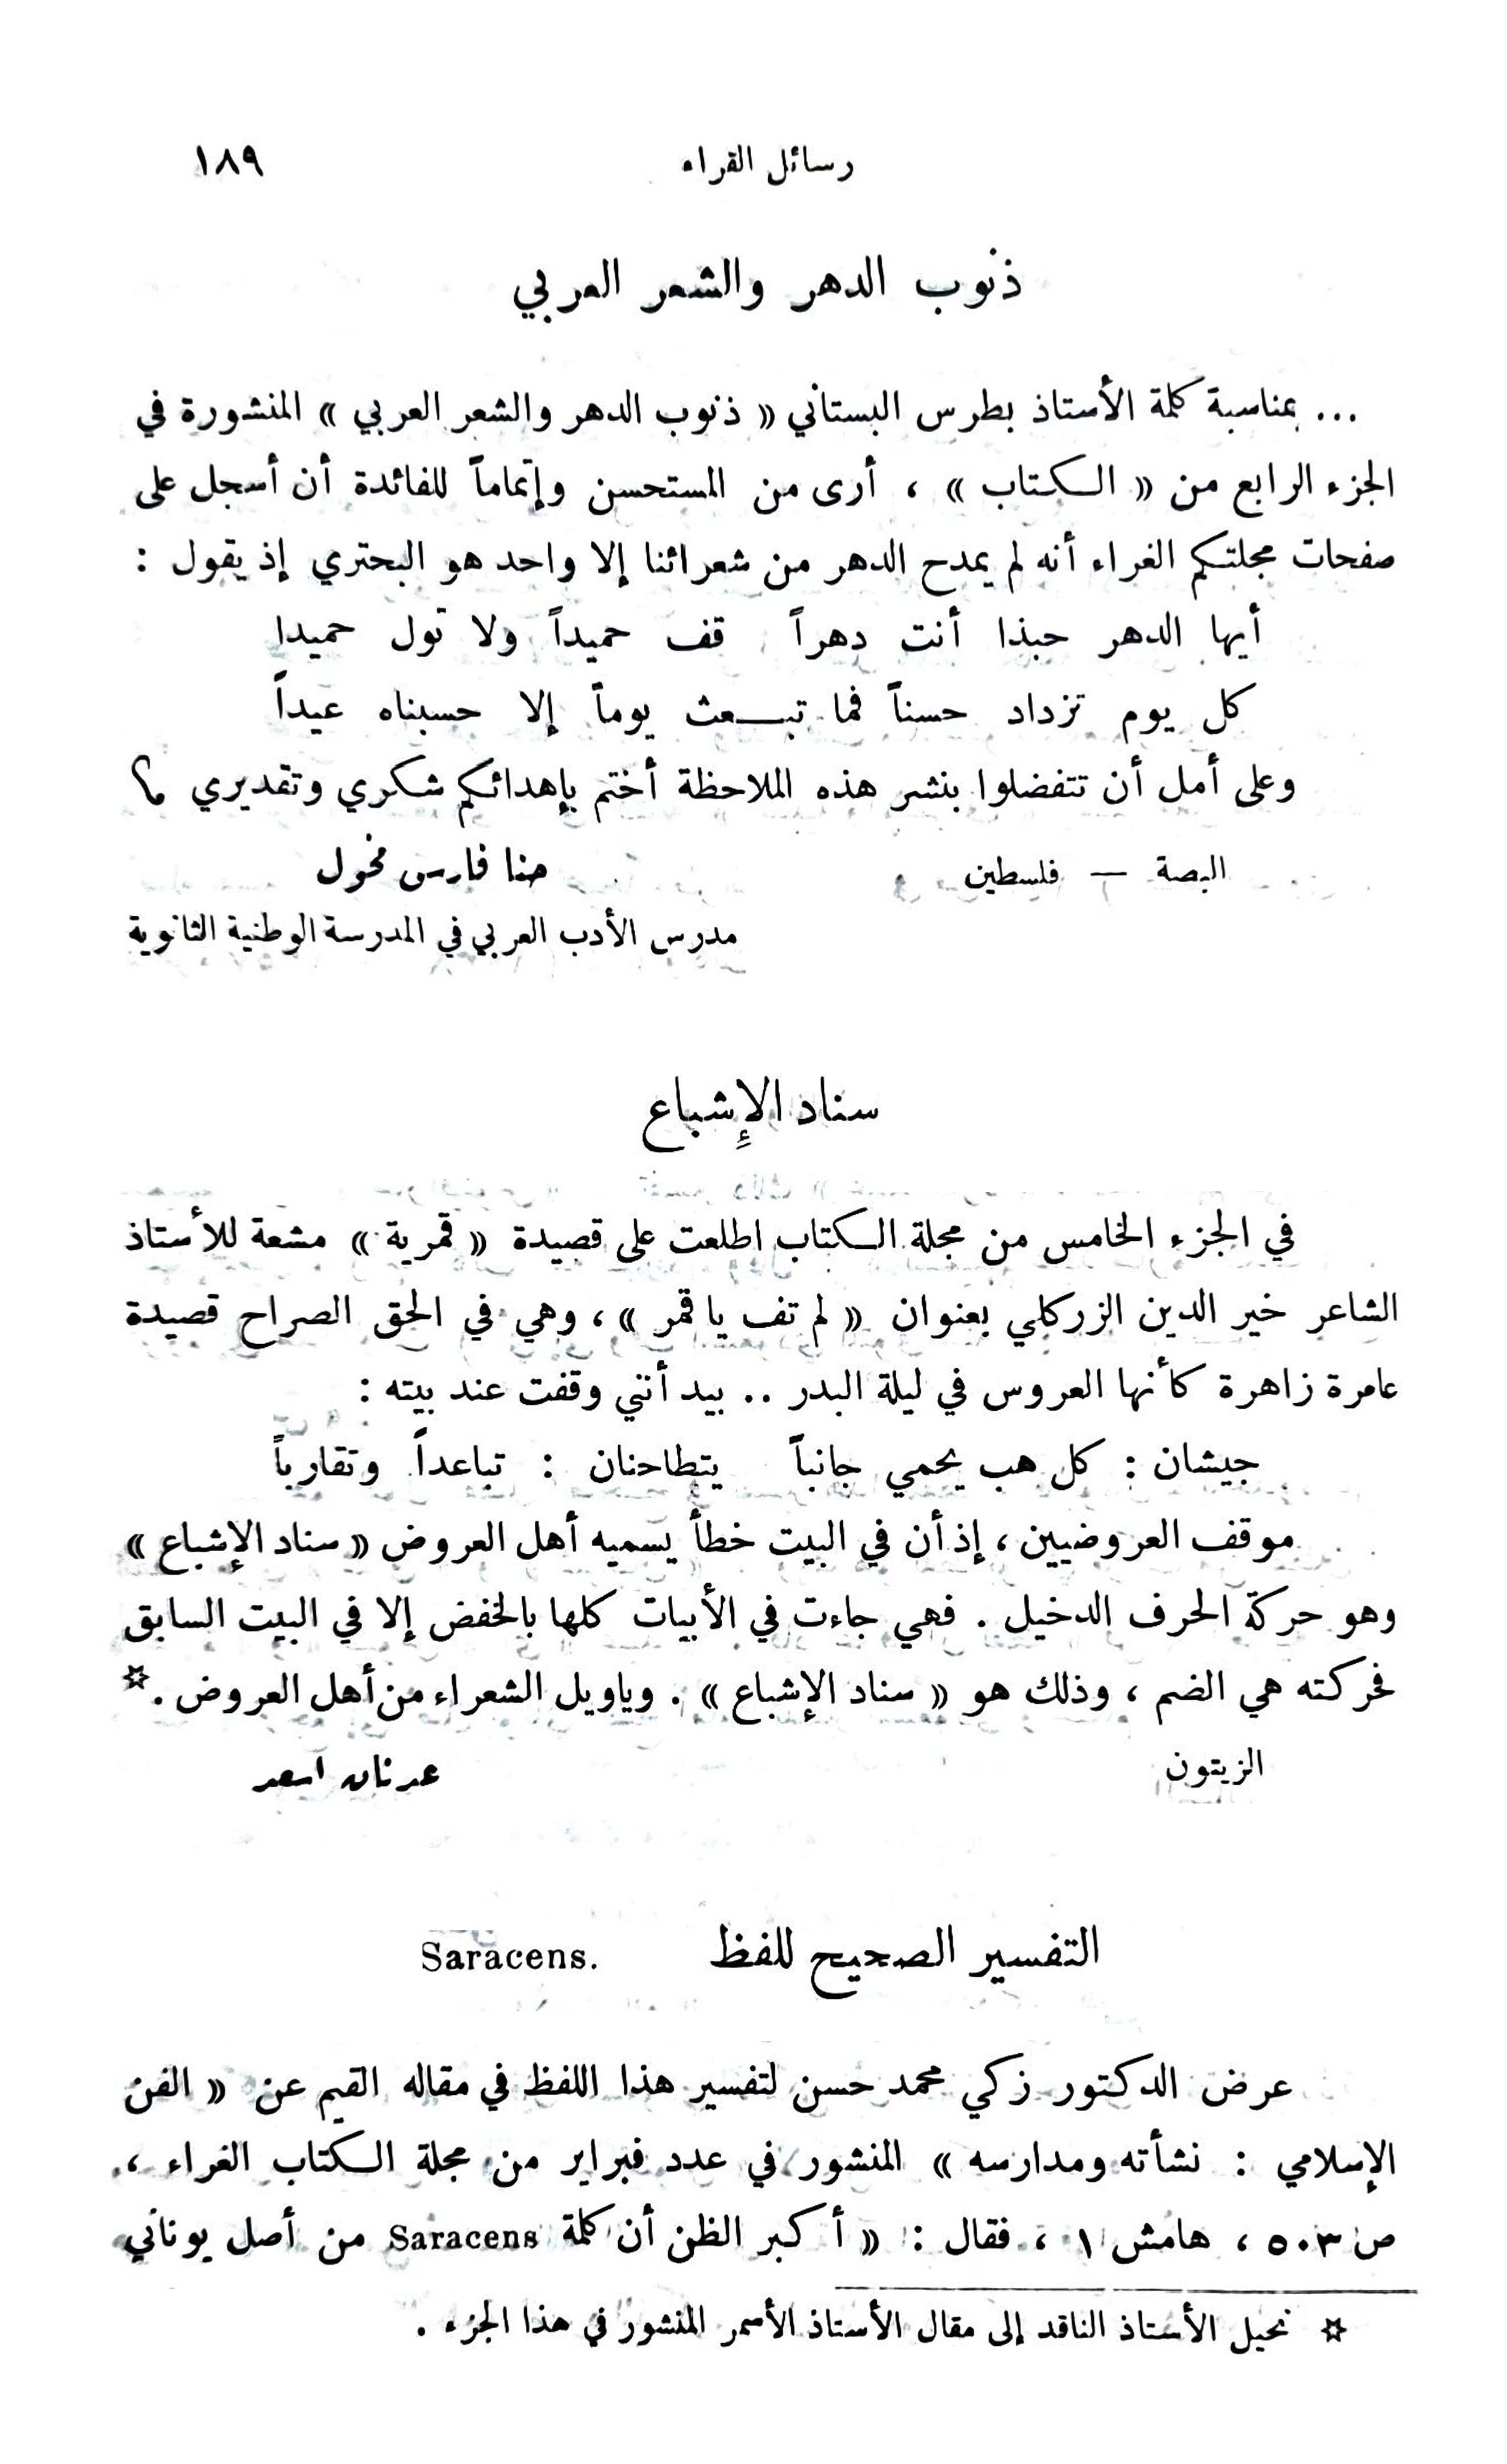 رسائل القراء ١٨٩
ذنوب الدهر والشعر العربي
... بمناسبة كلمة الأستاذ بطرس البستاني « ذنوب الدهر والشعر العربي » المنشورة في
الجزء الرابع من « الكتاب » ، أرى من المستحسن وإتماماً للفائدة أن أسجل على
صفحات مجلتكم الغراء أنه لم يمدح الدهر من شعرائنا إلا واحد هو البحتري إذ يقول :
أيها الدهر حبذا أنت دهراً قف حميداً ولا تول حميدا
كل يوم تزداد حسناً فما تبعث يوماً إلا حسبناه عيداً
وعلى أمل أن تتفضلوا بنشر هذه الملاحظة أختم بإهدائكم شكري وتقديري ؟
البصة — فلسطين حنا فارس مخول
مدرس الأدب العربي في المدرسة الوطنية الثانوية
سناد الإشباع
في الجزء الخامس من مجلة الكتاب اطلعت على قصيدة « قمرية » مشعة للأستاذ
الشاعر خير الدين الزركلي بعنوان « لم تف يا قمر » ، وهي في الحق الصراح قصيدة
عامرة زاهرة كأنها العروس في ليلة البدر .. بيد أنني وقفت عند بيته :
جيشان : كل هب يحمي جانباً يتطاحنان : تباعداً وتقارباً
موقف العروضيين ، إذ أن في البيت خطأ يسميه أهل العروض « سناد الإشباع »
وهو حركة الحرف الدخيل . فهي جاءت في الأبيات كلها بالخفض إلا في البيت السابق
فحركته هي الضم ، وذلك هو « سناد الإشباع » . وياويل الشعراء من أهل العروض . ☆
الزيتون عدنان اسعد
التفسير الصحيح للفظ Saracens.
عرض الدكتور زكي محمد حسن لتفسير هذا اللفظ في مقاله القيم عن « الفن
الإسلامي : نشأته ومدارسه » المنشور في عدد فبراير من مجلة الكتاب الغراء ،
ص ٥٠٣ ، هامش ١ ، فقال : « أكبر الظن أن كلمة Saracens من أصل يوناني
☆ نحيل الأستاذ الناقد إلى مقال الأستاذ الأسمر المنشور في هذا الجزء .